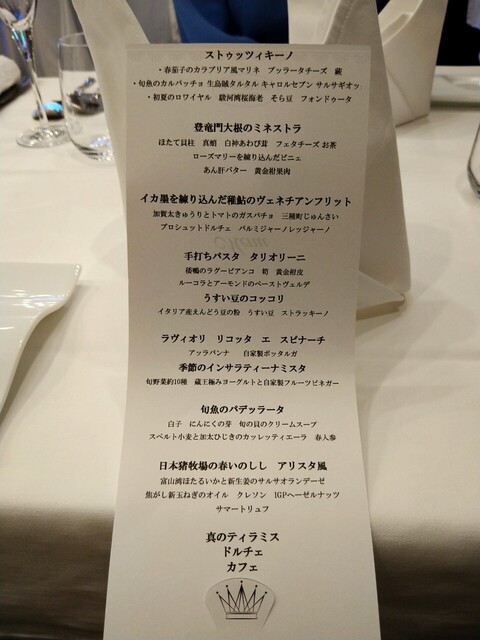 ストゥッツィキーノ
・春茄子のカラブリア風マリネ　ブッラータチーズ　蕨
・旬魚のカルパッチョ 生烏賊タルタル キャロルセブン サルサギオッ
・初夏のロワイヤル　駿河湾桜海老　そら豆　フォンドゥータ
登竜門大根のミネストラ
ほたて貝柱　真蛸　白神あわび茸　フェタチーズ お茶
ローズマリーを練り込んだビニェ
あん肝バター　黄金柑果肉
イカ墨を練り込んだ稚鮎のヴェネチアンフリット
加賀太きゅうりとトマトのガスパチョ　三種町じゅんさい
プロシュットドルチェ　パルミジャーノレッジャーノ
手打ちパスタ　タリオリーニ
倭鴨のラグービアンコ　筍　黄金柑皮
ルーコラとアーモンドのペーストヴェルデ
うすい豆のコッコリ
イタリア産えんどう豆の粉　うすい豆　ストラッキーノ
ラヴィオリ　リコッタ　エ　スピナーチ
アッラパンナ　自家製ボッタルガ
季節のインサラティーナミスタ
旬野菜約10種　蔵王極みヨーグルトと自家製フルーツビネガー
旬魚のパデッラータ
白子　にんにくの芽　旬の貝のクリームスープ
スペルト小麦と加太ひじきのカッレッティエーラ　春人参
日本猪牧場の春いのしし　アリスタ風
富山湾ほたるいかと新生姜のサルサオランデーゼ
焦がし新玉ねぎのオイル　クレソン　IGPヘーゼルナッツ
サマートリュフ
真のティラミス
ドルチェ
カフェ